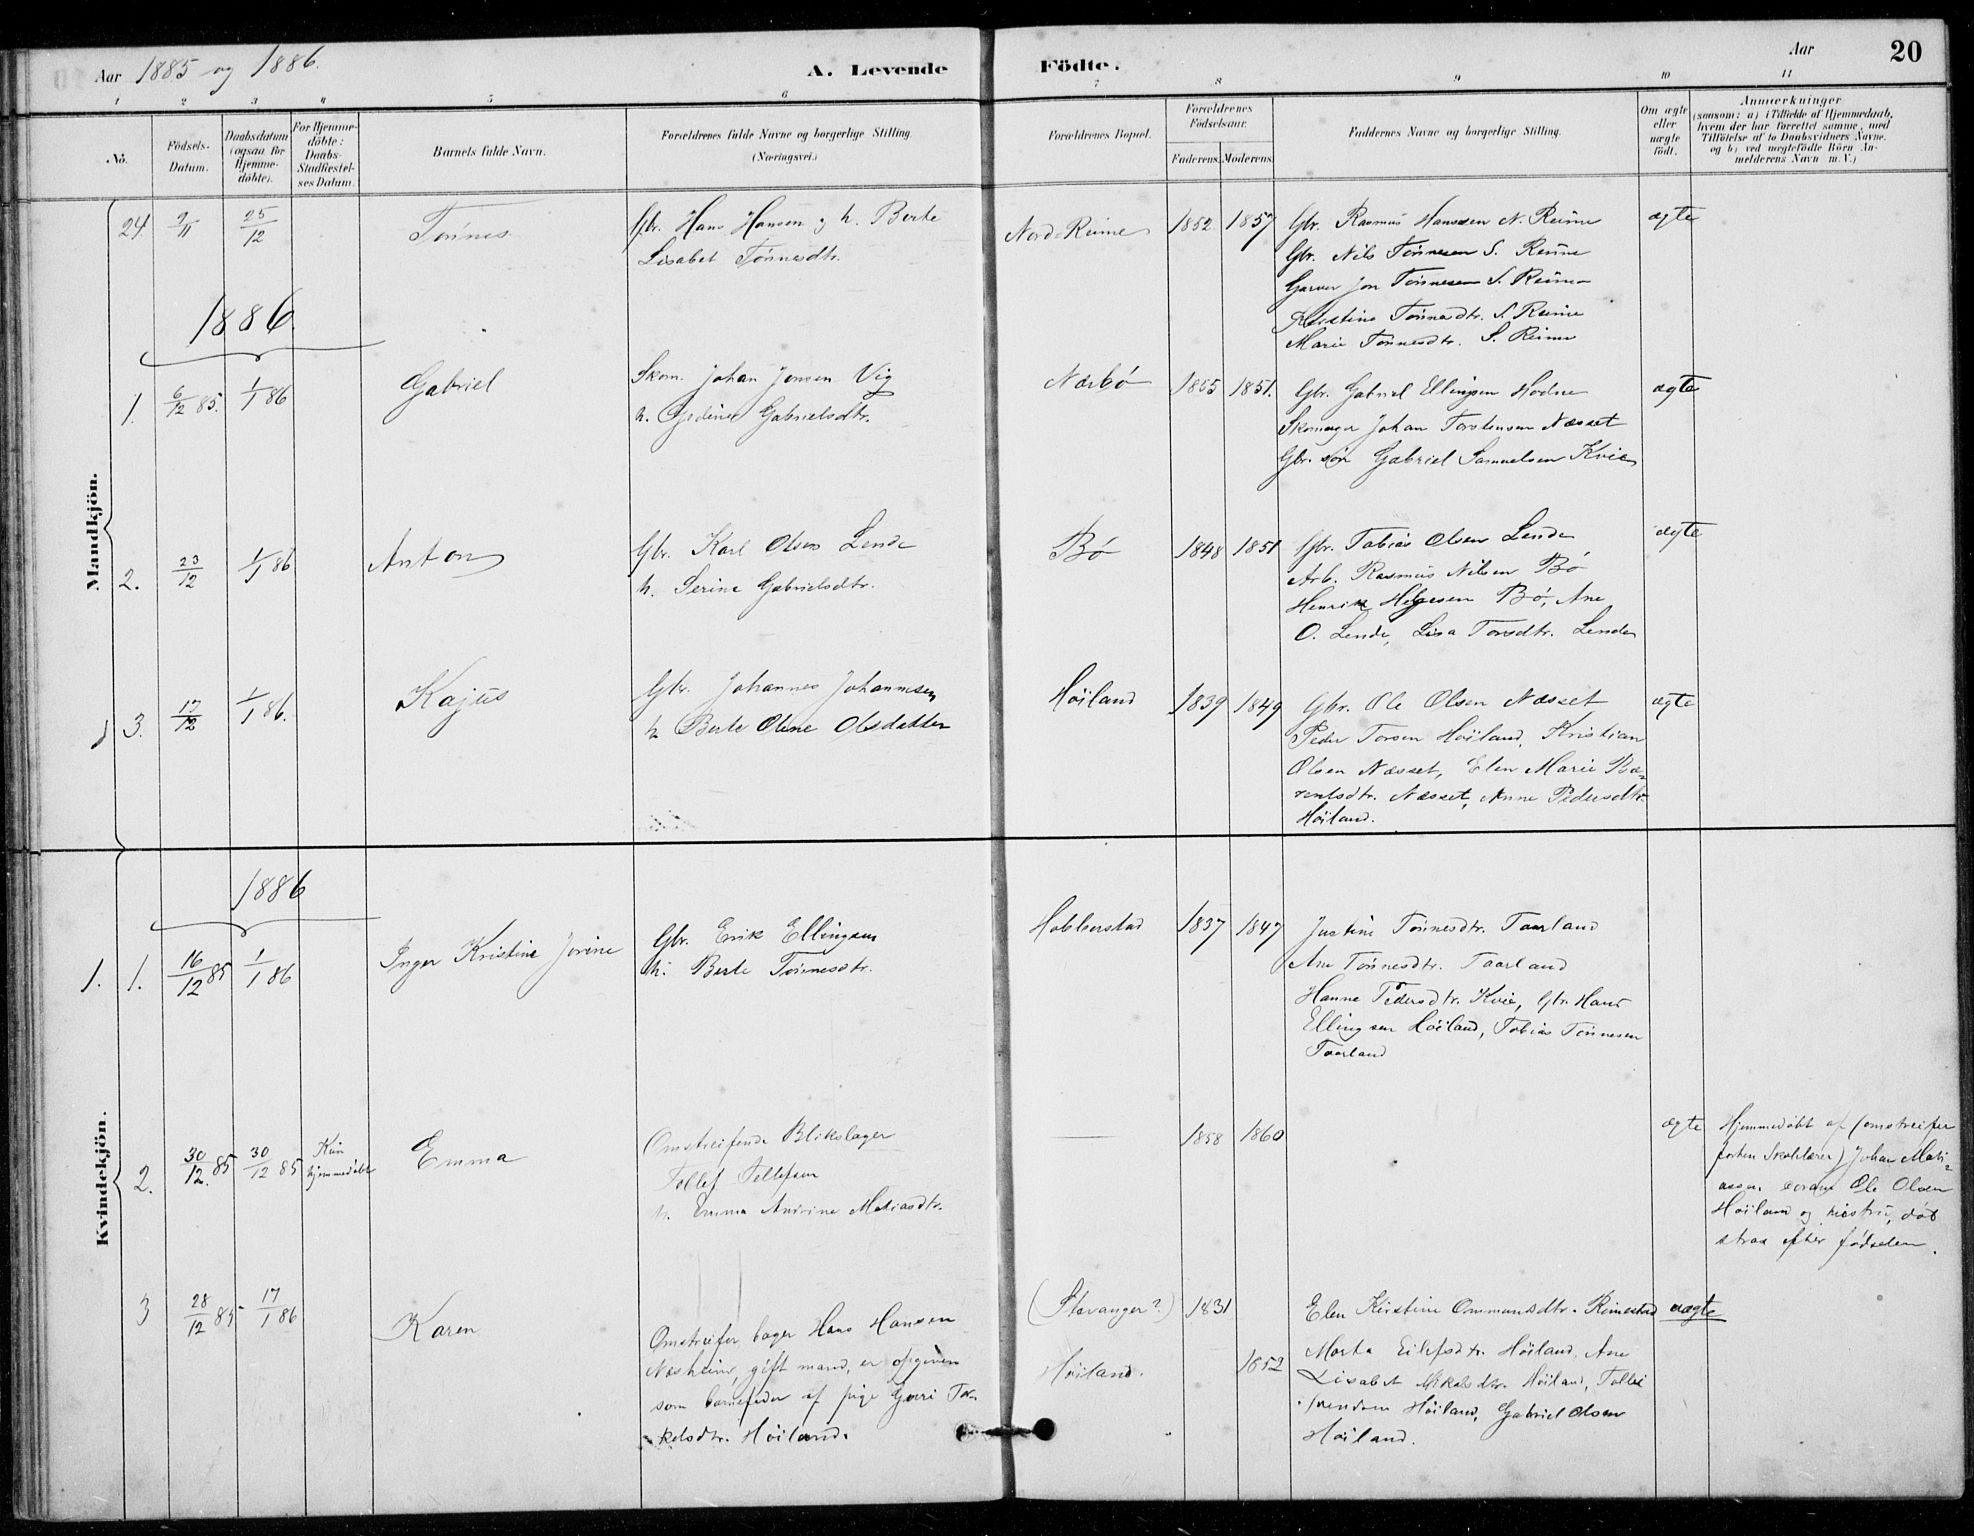 Aar 1885 og 1886.
A. Levende Födte.
Aar
20
1 2 3 4 5 6 7 8 9 10 11
No.
Födsels-Datum.
Daabsdatum (ogsaa for Hjemme-döbte).
For Hjemme-döbte: Daabs-Stadfæstel-ses Datum.
Barnets fulde Navn.
Forældrenes fulde Navne og borgerlige Stilling. (Næringsvei.)
Forældrenes Bopæl.
Forældrenes Födselsaar.
Faderens. Moderens.
Faddernes Navne og borgerlige Stilling.
Om ægte eller uægte födt.
Anmærkninger
(saasom: a) i Tilfælde af Hjemmedaab,
hvem der har forrettet samme, med
Tilföielse af to Daabsvidners Navne,
og b) ved uægtefödte Börn An-
melderens Navn m. V.)
Mandkjön.
24 9/11 25/12 Tønnes
Gbr. Hans Hansen og h. Berte
Lisabet Tønnesdtr.
Nord-Reime 1852 1857
Gbr. Rasmus Hanssen N. Reime
Gbr. Nils Tønnesen S. Reime
Garver Jon Tønnesen S. Reime
Kirstine Tønnesdtr. S. Reime
Marie Tønnesdtr. S. Reime
ægte
1886
1. 6/12 85. 1/1 86 Gabriel
Skom. Johan Jonsen Vig
h. Gabrielsdtr.
Nærbø 1855 1851.
Gbr. Gabriel Ellingsen Hodne
Skomager Johan Torstensen Næsset
Gbr. søn Gabriel Samuelsen Kvie
ægte
2. 23/12 1/1 86 Anton
Gbr. Karl Olsen Lende
h. Serine Gabrielsdtr.
Bø 1848 1851
Gbr. Tobias Olsen Lende
Arb. Rasmus Nilsen Bø
Henrik Helgesen Bø, Ane
O. Lende, Lisa Torsdtr. Lende
ægte
3. 17/12 1/1 86. Kajus
Gbr. Johannes Johannesen
h Berte Oline Olsdatter
Høiland 1839 1849
Gbr. Ole Olsen Næsset
Peder Torsen Høiland, Kristian
Olsen Næsset, Elen Marie Bæ-
rentsdtr. Næsset, Anne Pedersdtr.
Høiland.
ægte
Kvindekjön.
1886
1. 1. 16/12 85 1/1 86 Inger Kristine Jorine
Gbr. Erik Ellingsen
h. Berte Tønnesdtr.
Hobberstad 1837 1847
Justine Tønnesdtr. Taarland
Ane Tønnesdtr. Taarland
Hanne Pedersdtr. Kvie, Gbr. Hans
Ellingsen Høiland, Tobias Tønnesen
Taarland
2. 30/12 85 30/12 85 Kun hjemmedøbt Emma
Omstreifende Blikslager
Tollef Tellefsen
h. Emma Andrine Matiasdtr.
— 1858 1860
ægte
Hjemmedøbt af (omstreifer
forhen Skolelærer) Johan Mati-
assen coram Ole Olsen
Høiland og hustru, død
strax efter fødselen.
3 28/12 85 17/1 86 Karen
Omstreifer bager Hans Hansen
Næsheim, gift mand, er opgiven
som barnefader af pige Guri Tor-
kelsdtr. Høiland.
(Stavanger?) 1831
Høiland. 1852
Elen Kirstine Ommundsdtr. Reimestad
Marta Eilefsdtr. Høiland, Ane
Lisabet Mikalsdtr. Høiland, Tollei
Svendsen Høiland, Gabriel Olsen
Høiland.
uægte